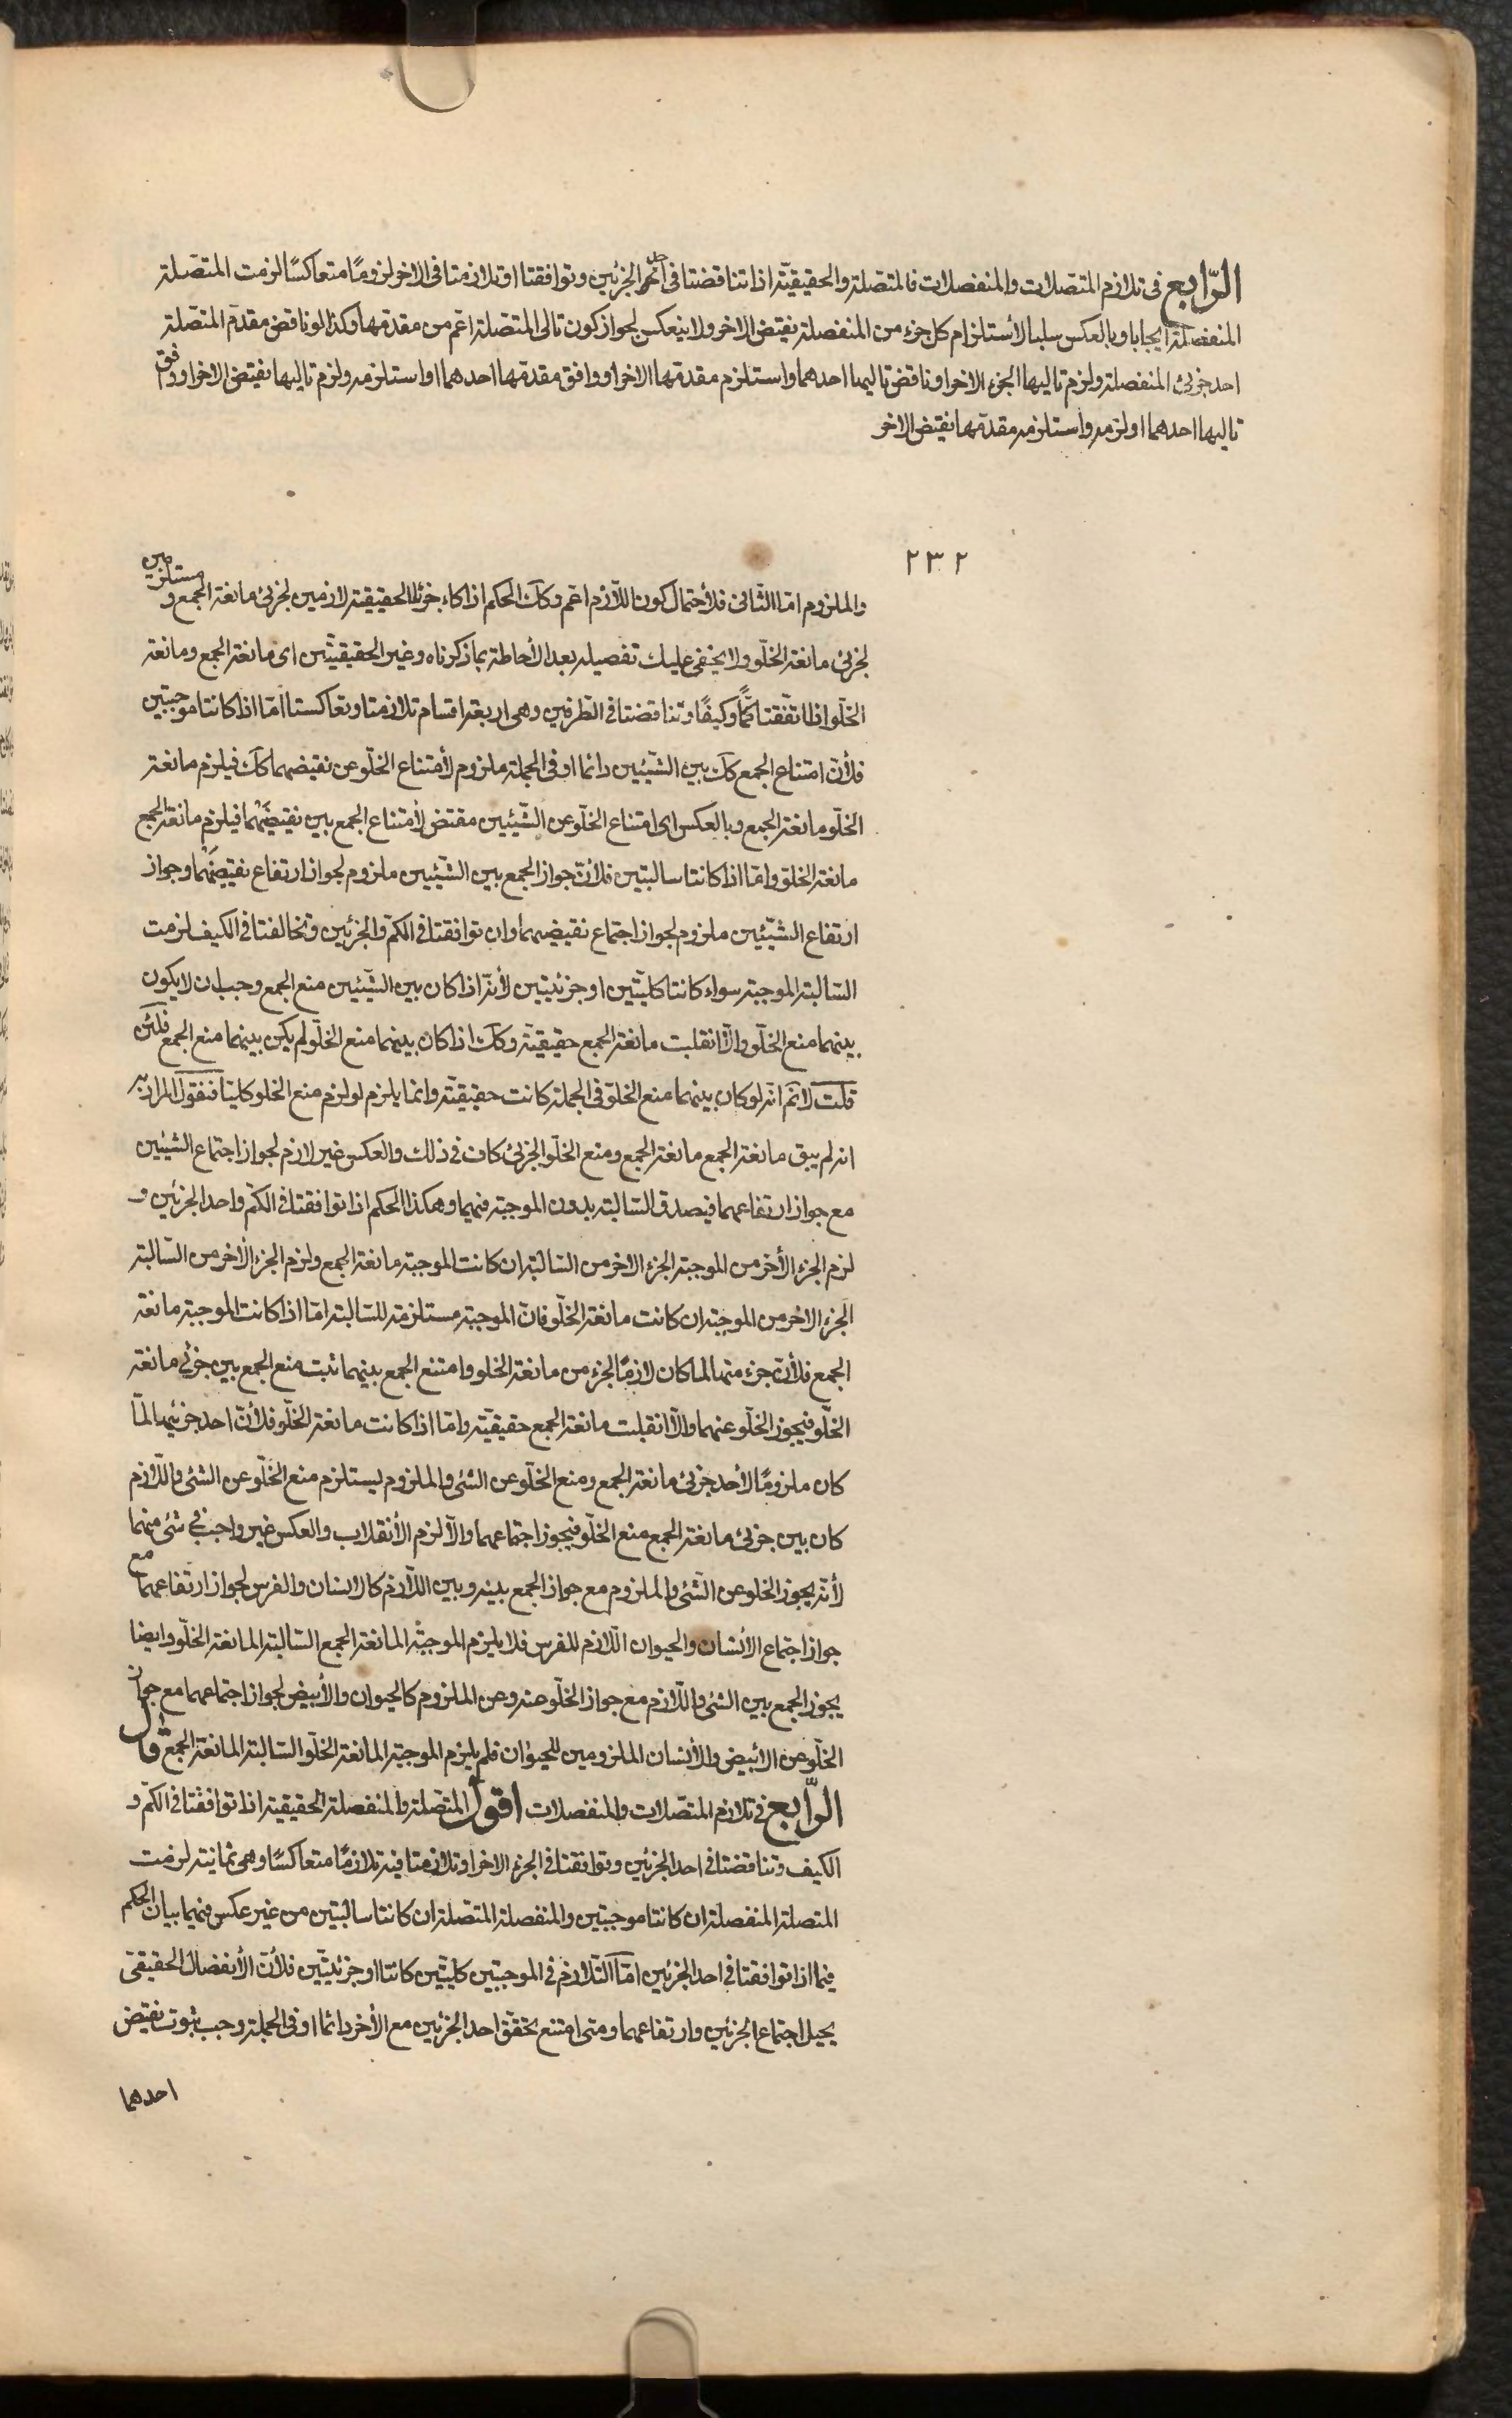 الرّابع فى تلازم المتصلات والمنفصلات فالمتصلة والحقيقيّة اذا تناقضتا فى احد الجزئين وتوافقتا او تلازمتا فى الاخر لزومًا متعاكسًا لزمت المتصّلة
المنفصلة ايجابا وبالعكس سلبا لأستلزام كل جزء من المنفصلة نقيض الاخر ولا ينعكس لجواز كون تالى المتصّلة اعّم من مقدمها وكذا لو ناقض مقدم المتصّلة
احد جزئى المنفصلة ولزم تاليها الجزء الاخر او ناقض تاليها احدهما واستلزم مقدمّها الاخر او وافق مقدمّها احدهما او استلزمه ولزم تاليها نقيض الاخر او وافق
تاليها احدهما او لزمه واستلزمه مقدمّها نقيض الاخر
٢٣٢
والملزوم امّا الثّانى فلأحتمال كون اللّازم اعّم وكك الحكم اذا كان جزئا الحقيقيّة لازمين لجزئى مانعة الجمع و مستلزمين
لجزئى مانعة الخلّو ولا يخفى عليك تفصيله بعد الأحاطة بما ذكرناه وغير الحقيقيّتين اى مانعة الجمع ومانعة
الخلّو اذا اتّفقتا كمًّا وكيفًا وتناقضتا فى الطّرفين وهى اربعة اقسام تلازمتا وتعاكستا امّا اذا كانتا موجبتين
فلأنّ امتناع الجمع كك بين الشّيئين دائما او فى الجملة ملزوم لأمتناع الخلّو عن نقيضهما كك فيلزم مانعة
الخلّو مانعة الجمع وبالعكس اى امتناع الخلّو عن الشّيئين مقتض لأمتناع الجمع بين نقيضَهْما فيلزم مانعة الجمع
مانعة الخلّو وامّا اذا كانتا سالبتين فلأنّ جواز الجمع بين الشّيئين ملزوم لجواز ارتفاع نقيضَهْما وجواز
ارتفاع الشّيئين ملزوم لجواز اجتماع نقيضيهما وان توافقتا فى الكمّ والجزئين وتخالفتا فى الكيف لزمت
السّالبة الموجبة سواء كانتا كليّتين او جزئيتين لأنّه اذا كان بين الشّيئين منع الجمع وجب ان لا يكون
بينهما منع الخلّو والّا انقلبت مانعة الجمع حقيقيّة وكك اذا كان بينهما منع الخلّو لم يكن بينهما منع الجمع فلئن
قلت لانم انّه لو كان بينهما منع الخلّو فى الجملة كانت حقيقيّة وانما يلزم لو لزم منع الخلو كليّا فنقول المراد به
انه لم يبق مانعة الجمع مانعة الجمع ومنع الخلّو الجزئى كاف فى ذلك والعكس غير لازم لجواز اجتماع الشيئين
مع جواز ارتفاعهما فيصدق السّالبة بدون الموجبة فيهما وهكذا الحكم اذا توافقتا فى الكمّ واحد الجزئين و
لزم الجزء الأخر من الموجبة الجزء الاخر من السّالبة ان كانت الموجبة مانعة الجمع ولزم الجزء الأخر من السّالبة
الجزء الاخر من الموجبة ان كانت مانعة الخلّو فانّ الموجبة مستلزمة للسّالبة امّا اذا كانت الموجبة مانعة
الجمع فلأنّ جزء منها لما كان لازمًا لجزء من مانعة الخلو وامتنع الجمع بينهما ثبت منع الجمع بين جزئى مانعة
الخلّو فيجوز الخلّو عنهما والّا انقلبت مانعة الجمع حقيقيّة وامّا اذا كانت مانعة الخلّو فلأنّ احد جزئيها لمّا
كان ملزومًا لأحد جزئى مانعة الجمع ومنع الخلّو عن الشئ والملزوم يستلزم منع الخلّو عن الشئ واللّازم
كان بين جزئى مانعة الجمع منع الخلّو فيجوز اجتماعهما والّا لزم الأنقلاب والعكس غير واجب فى شئ منهما
لأنّه يجوز الخلو عن الشّئ والملزوم مع جواز الجمع بينه وبين اللّازم كالانسان والفرس لجواز ارتفاعهما مع
جواز اجتماع الأنسان والحيوان اللّازم للفرس فلا يلزم الموجبّة المانعة الجمع السّالبة المانعة الخلّو وايضا
يجوز الجمع بين الشئ واللّازم مع جواز الخلّو عنه وعن الملزوم كالحيوان والأبيض لجواز اجتماعهما مع جواز
الخلّو عن الأبيض والأنسان الملزومين للحيوان فلم يلزم الموجبّة المانعة الخلّو السّالبة المانعة الجمع قال
الرّابع فى تلازم المتصّلات والمنفصلات اقول المتصّلة والمنفصلة الحقيقية اذا توافقتا فى الكمّ و
الكيف وتناقضتا فى احد الجزئين وتوافقتا فى الجزء الاخر او تلازمتا فيه تلازمًا متعاكسًا وهى ثمانية لزمت
المتصلة المنفصلة ان كانتا موجبتين والمنفصلة المتصّلة ان كانتا سالبتين من غير عكس فيهما بيان الحكم
فيما اذا توافقتا فى احد الجزئين امّا التّلازم فى الموجبّتين كليّتين كانتا او جزئيّتين فلأنّ الأنفصال الحقيقىّ
يحيل اجتماع الجزئين وارتفاعهما ومتى امتنع تحقّق احد الجزئين مع الأخر دائما او فى الجملة وجب ثبوت نقيض
احدهما